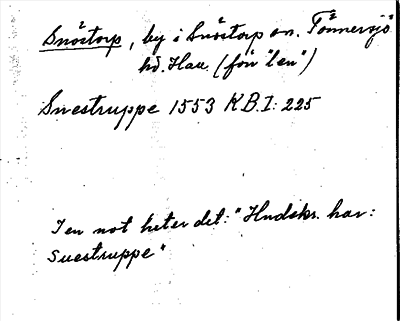 Snöstorp, by i Snöstorp sn. Tönnersjö
hd. Hall. (för "len")
Snestruppe 1553 KB.I: 225
I en not heter det: "Hndskr. har:
Suestruppe"